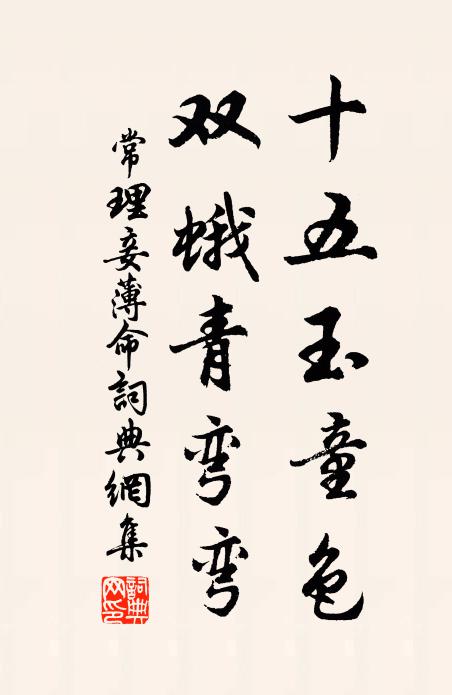 十五玉童色
双蛾青弯弯
常理妾薄命詞典網集
詞典网印